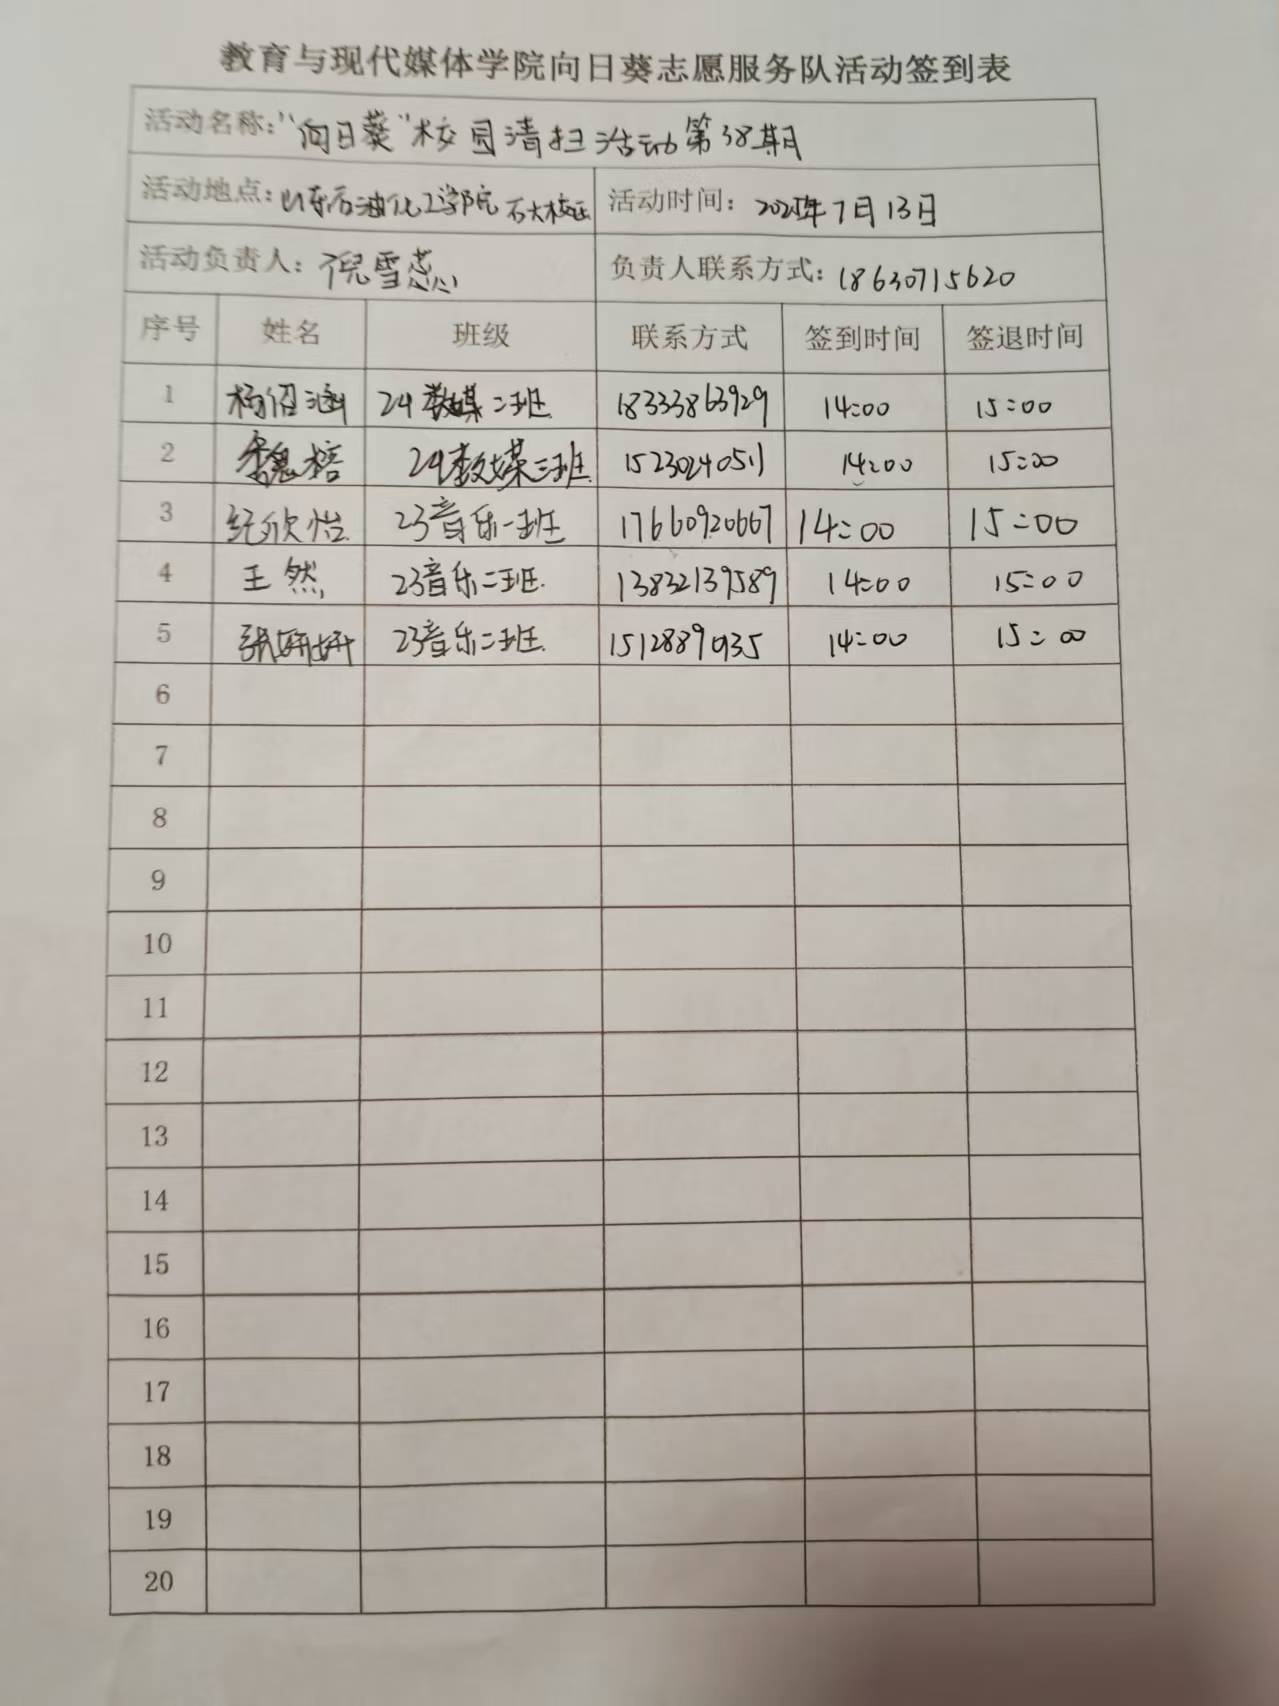 教育与现代媒体学院向日葵志愿服务队活动签到表
活动名称：“向日葵”校园清扫活动第38期
活动地点：山东石油化工学院石大校区 活动时间：2025年7月13日
活动负责人：倪雪蕊 负责人联系方式：18630715620
序号 姓名 班级 联系方式 签到时间 签退时间
1 杨绍涵 24数媒二班 18333863929 14:00 15:00
2 魏榕 24数媒三班 15230240511 14:00 15:00
3 纪欣怡 23音乐一班 17660920667 14:00 15:00
4 王然 23音乐二班 13832139589 14:00 15:00
5 张妍妍 23音乐二班 14:00 15:00
6
7
8
9
10
11
12
13
14
15
16
17
18
19
20